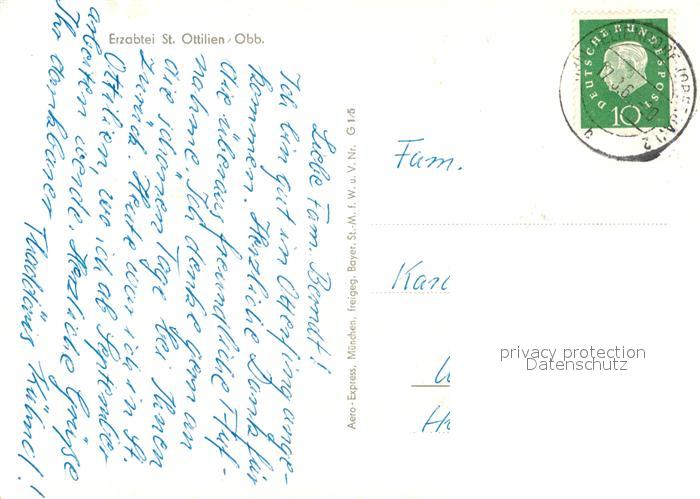 Erzabtei St. Ottilien, Obb.
Liebe Fam. Berndt!
Ich bin gut in Otterfing ange-
kommen. Herzliche Dank für
die überaus freundliche Auf-
nahme. Ich denke gern an
die schönen Tage bei Ihnen
zurück. Heute war ich in St.
Ottilien, wo ich ab September
arbeiten werde. Herzliche Grüße
Ihr dankbarer Thaddäus Kühnel!
Aero-Express, München, freigeg. Bayer. St.-M. f. W. u. V. Nr. G 1/5
DEUTSCHE BUNDESPOST
10
Fam.
Karl
privacy protection
Datenschutz